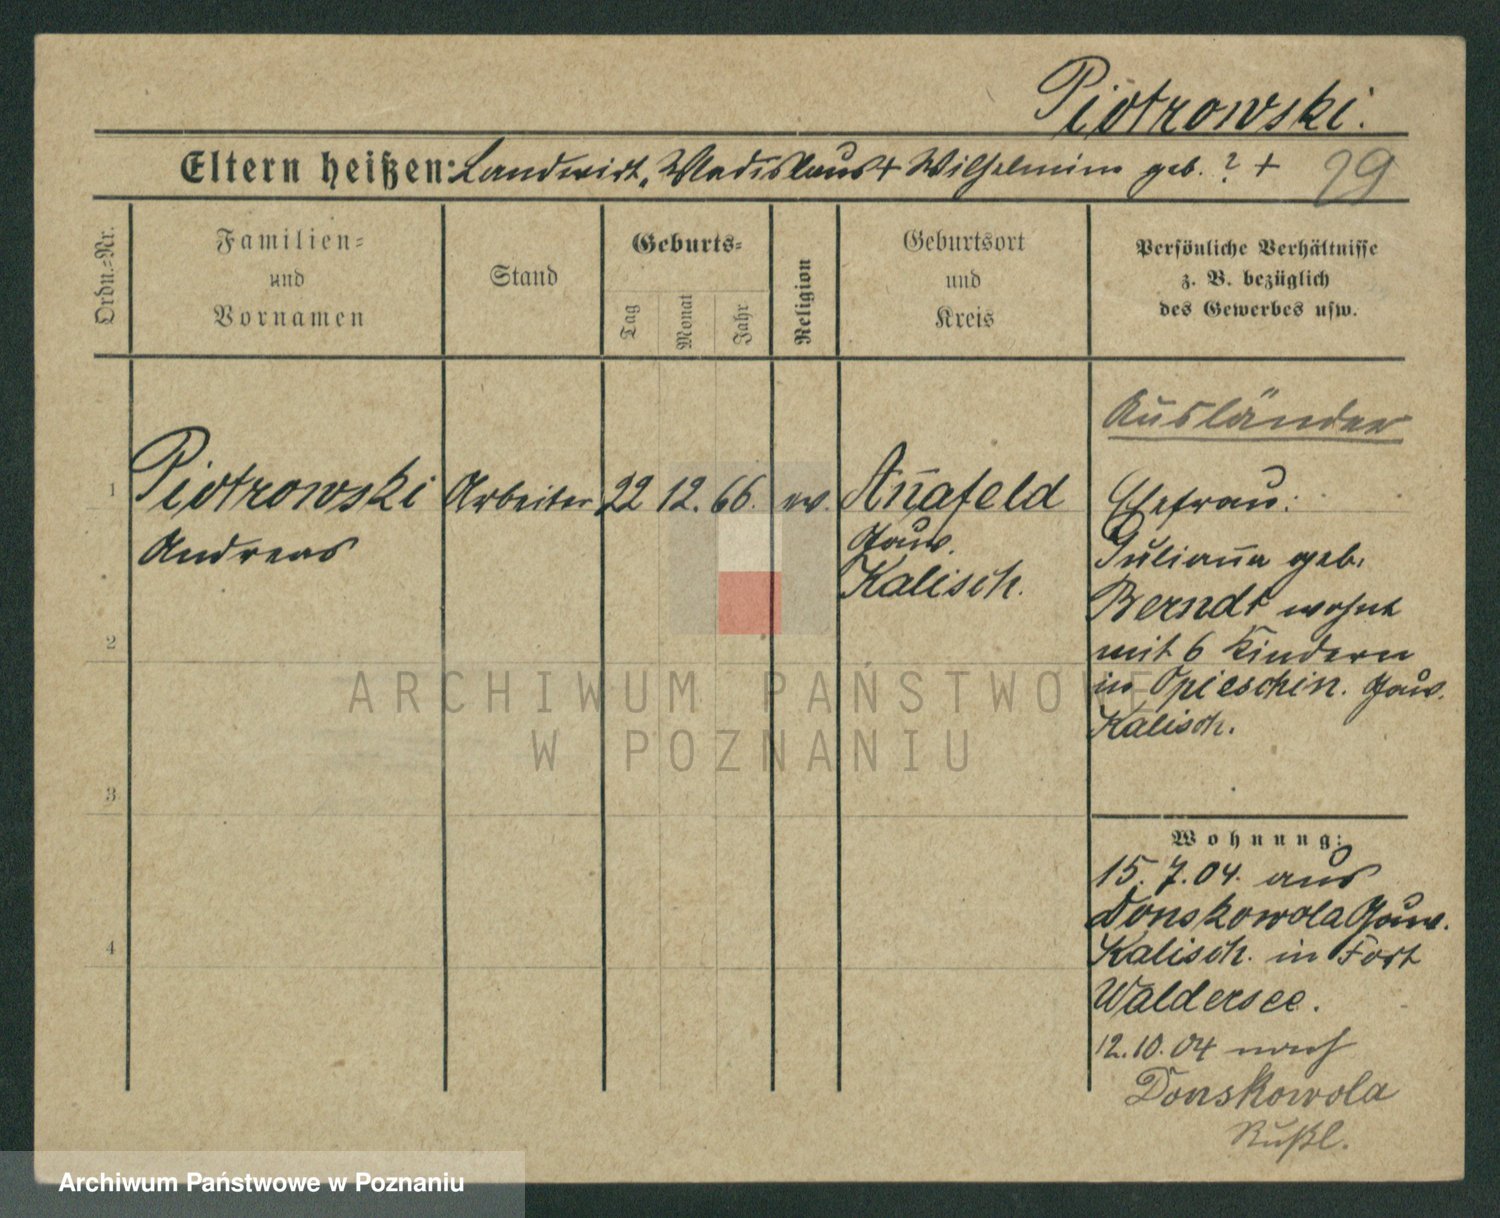 Piotrowski.
Eltern heißen: Landwirt, Wladislaus + Wilhelmine geb. ? +
29
Ordn.-Nr.
Familien-
und
Vornamen
Stand
Geburts-
Tag
Monat
Jahr
Religion
Geburtsort
und
Kreis
Persönliche Verhältnisse
z. B. bezüglich
des Gewerbes usw.
Ausländer
1 Piotrowski Arbeiter 22 12. 66. ev. Anafeld
Andreas
Gouv.
Kalisch.
Ehefrau:
Julianna geb.
Berndt wohnt
mit 6 Kindern
in Opieschin. Gouv.
Kalisch.
2
3
4
Wohnung:
15. 7. 04. aus
Donskowola Gouv.
Kalisch. in Fort
Waldersee.
12. 10. 04 nach
Donskowola
Rußl.
ARCHIWUM PAŃSTWOWE
W POZNANIU
Archiwum Państwowe w Poznaniu